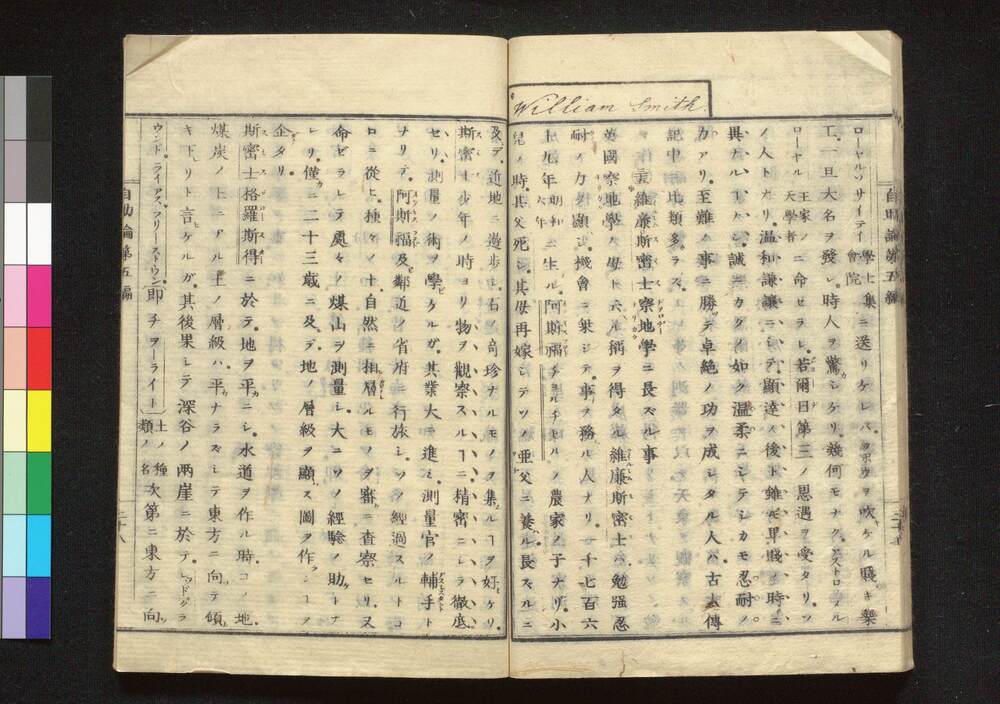 William Smith.
ローヤルソサイテイ 學士集會院 ニ送リケレバ、タポウヲ吹ケル賤キ樂
工、一旦大名ヲ發シ、時人ヲ驚シケリ、幾何モナク、アストロノメル
ローヤル 王家ノ天學者 ニ命セラレ、若爾日第三ノ思遇ヲ受タリ、ソ
ノ人トナリ、温和謙讓ニシテ、顯達ノ後ト雖モ卑賤ノ時ニ
異ルヿナシ、誠ニカクノ如ク温柔ニシテ、シカモ忍耐ノ
力アリ、至難ノ事ニ勝テ卓絶ノ功ヲ成シタル人ハ、古今傳
記中ニ比類多カラズ、
維廉斯密士察地學ニ長ズル事
英國察地學ノ父母ト云ル稱ヲ得タル維廉斯密士ハ、勉强忍
耐ノ力ニ顯シ、機會ニ乗シテ、事ヲ務ル人ナリ、一千七百六
十九年 明和六年 ニ生ル、阿斯福 チユルチヒル ノ農家ノ子ナリ、小
兒ノ時、其父死シ、其母再嫁シテ、ソノ亜父ニ養ハル、長ズルニ
及デ、近地ニ遊歩シ、石ノ奇珍ナルモノヲ集ルヿヲ好ミケリ、
斯密士少年ノ時ヨリ、物ヲ觀察スルヿニ精密ニシテ徹底
セリ、測量ノ術ヲ學ビケルガ、其業大ニ進ミ、測量官ノ輔手ト
ナリテ、阿斯福及ビ鄰近ノ省府ニ行旅シ、ソノ經過スルトコ
ロニ從ヒ、種々ノ土、自然ニ相層ルモノヲ審ニ査察セリ、又
命ゼラレテ虞々ノ煤山ヲ測量シ、大ニソノ經驗ノ助トナ
レリ、僅ニ二十三歳ニ及デ、地ノ層級ヲ顯ス圖ヲ作ラン﹅ヲ
企タリ、
斯密士格羅斯得ニ於テ、地ヲ平ニシ、水道ヲ作ル時、コノ地
煤炭ノ上ニアル土ノ層級ハ、平ナラズシテ東方ニ向テ傾
キ下レリト言ケルガ、其後果シテ深谷ノ兩崖ニ於テ、レッドグラ
ウンド、ライアス、フリーストウン 即チヲーライト 土ノ種類ノ名 次第ニ東方ニ向
自助論第五編
自助論第五編
二十八